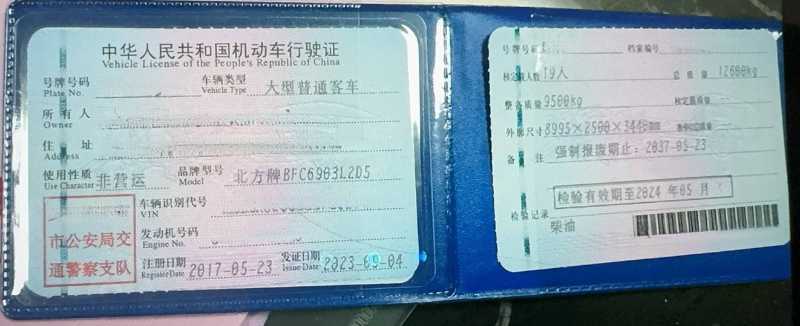 中华人民共和国机动车行驶证
Vehicle License of the People's Republic of China
号牌号码
Plate No.
车辆类型 大型普通客车
Vehicle Type
所有人
Owner
住址
Address
使用性质 非营运
Use Character
品牌型号 北方牌BFC6903L2D5
Model
车辆识别代号
VIN
发动机号码
Engine No.
市公安局交
通警察支队
注册日期 2017-05-23
Register Date
发证日期 2023-09-04
Issue Date
号牌号码
档案编号
核定载人数 19人
总质量 12600kg
整备质量 9500kg
核定载质量
外廓尺寸 8995×2500×3440mm
备注 强制报废期止：2037-05-23
检验有效期至2024年05月
检验记录
柴油